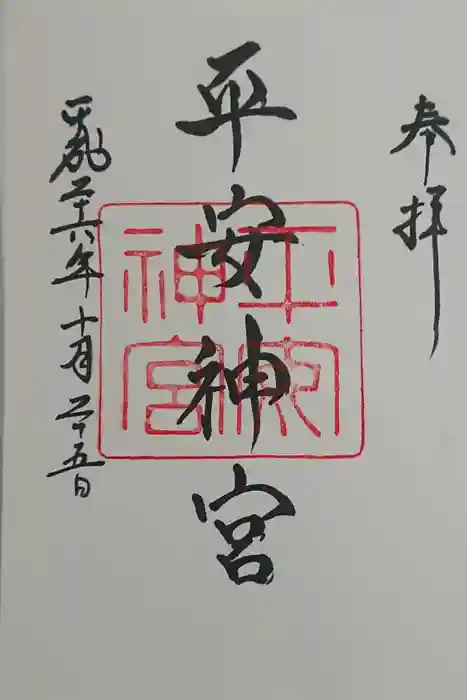 奉拝
平安神宮
平安
神宮
平成二十六年十月二十五日